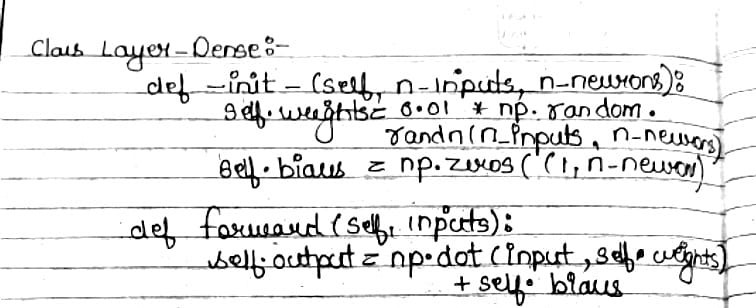 Class Layer-Dense:-
def -init- (self, n-inputs, n-neurons):
self.weights = 0.01 * np. random.
randn(n_inputs, n-neurons)
self.biases = np.zeros((1, n-neuron)
def forward (self, inputs):
self.output = np.dot (input, self.weights)
+ self. biases